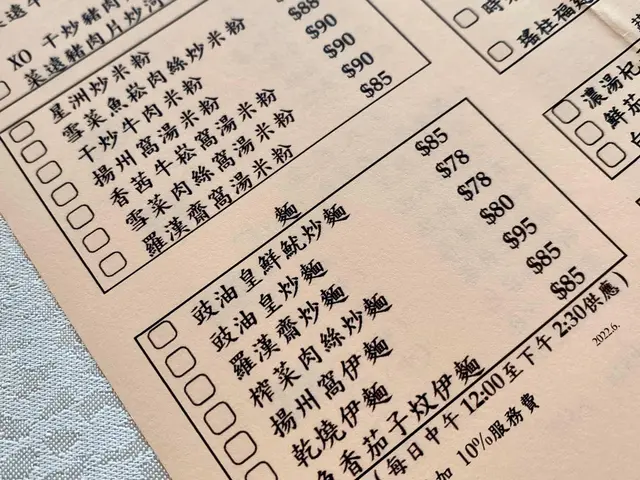 XO 干炒豬肉
菜遠豬肉片炒河
星洲炒米粉
雪菜魚崧肉絲炒米粉
干炒牛肉米粉 $88
揚州窩湯米粉 $90
香茜牛崧窩湯米粉 $90
雪菜肉絲窩湯米粉 $90
羅漢齋窩湯米粉 $85
麵
豉油皇鮮魷炒麵 $85
豉油皇炒麵 $78
羅漢齋炒麵 $78
榨菜肉絲炒麵 $80
揚州窩伊麵 $95
乾燒伊麵 $85
魚香茄子炆伊麵 $85
(每日中午 12:00至下午 2:30供應)
加 10%服務費
2022.6.
瑤柱福建
濃湯杞
鮮茄